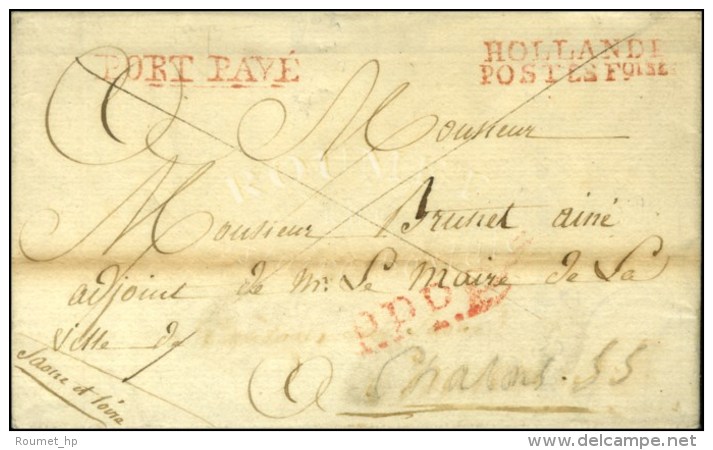 PORT PAYÉ
HOLLANDE
POSTES Foises
Monsieur
Monsieur Brunet ainé
adjoint de Mr. Le Maire de La
Ville de
P.P.P.P.
a Chalons. SS
Saone et Loire
Roumet_hp
delcampe.net